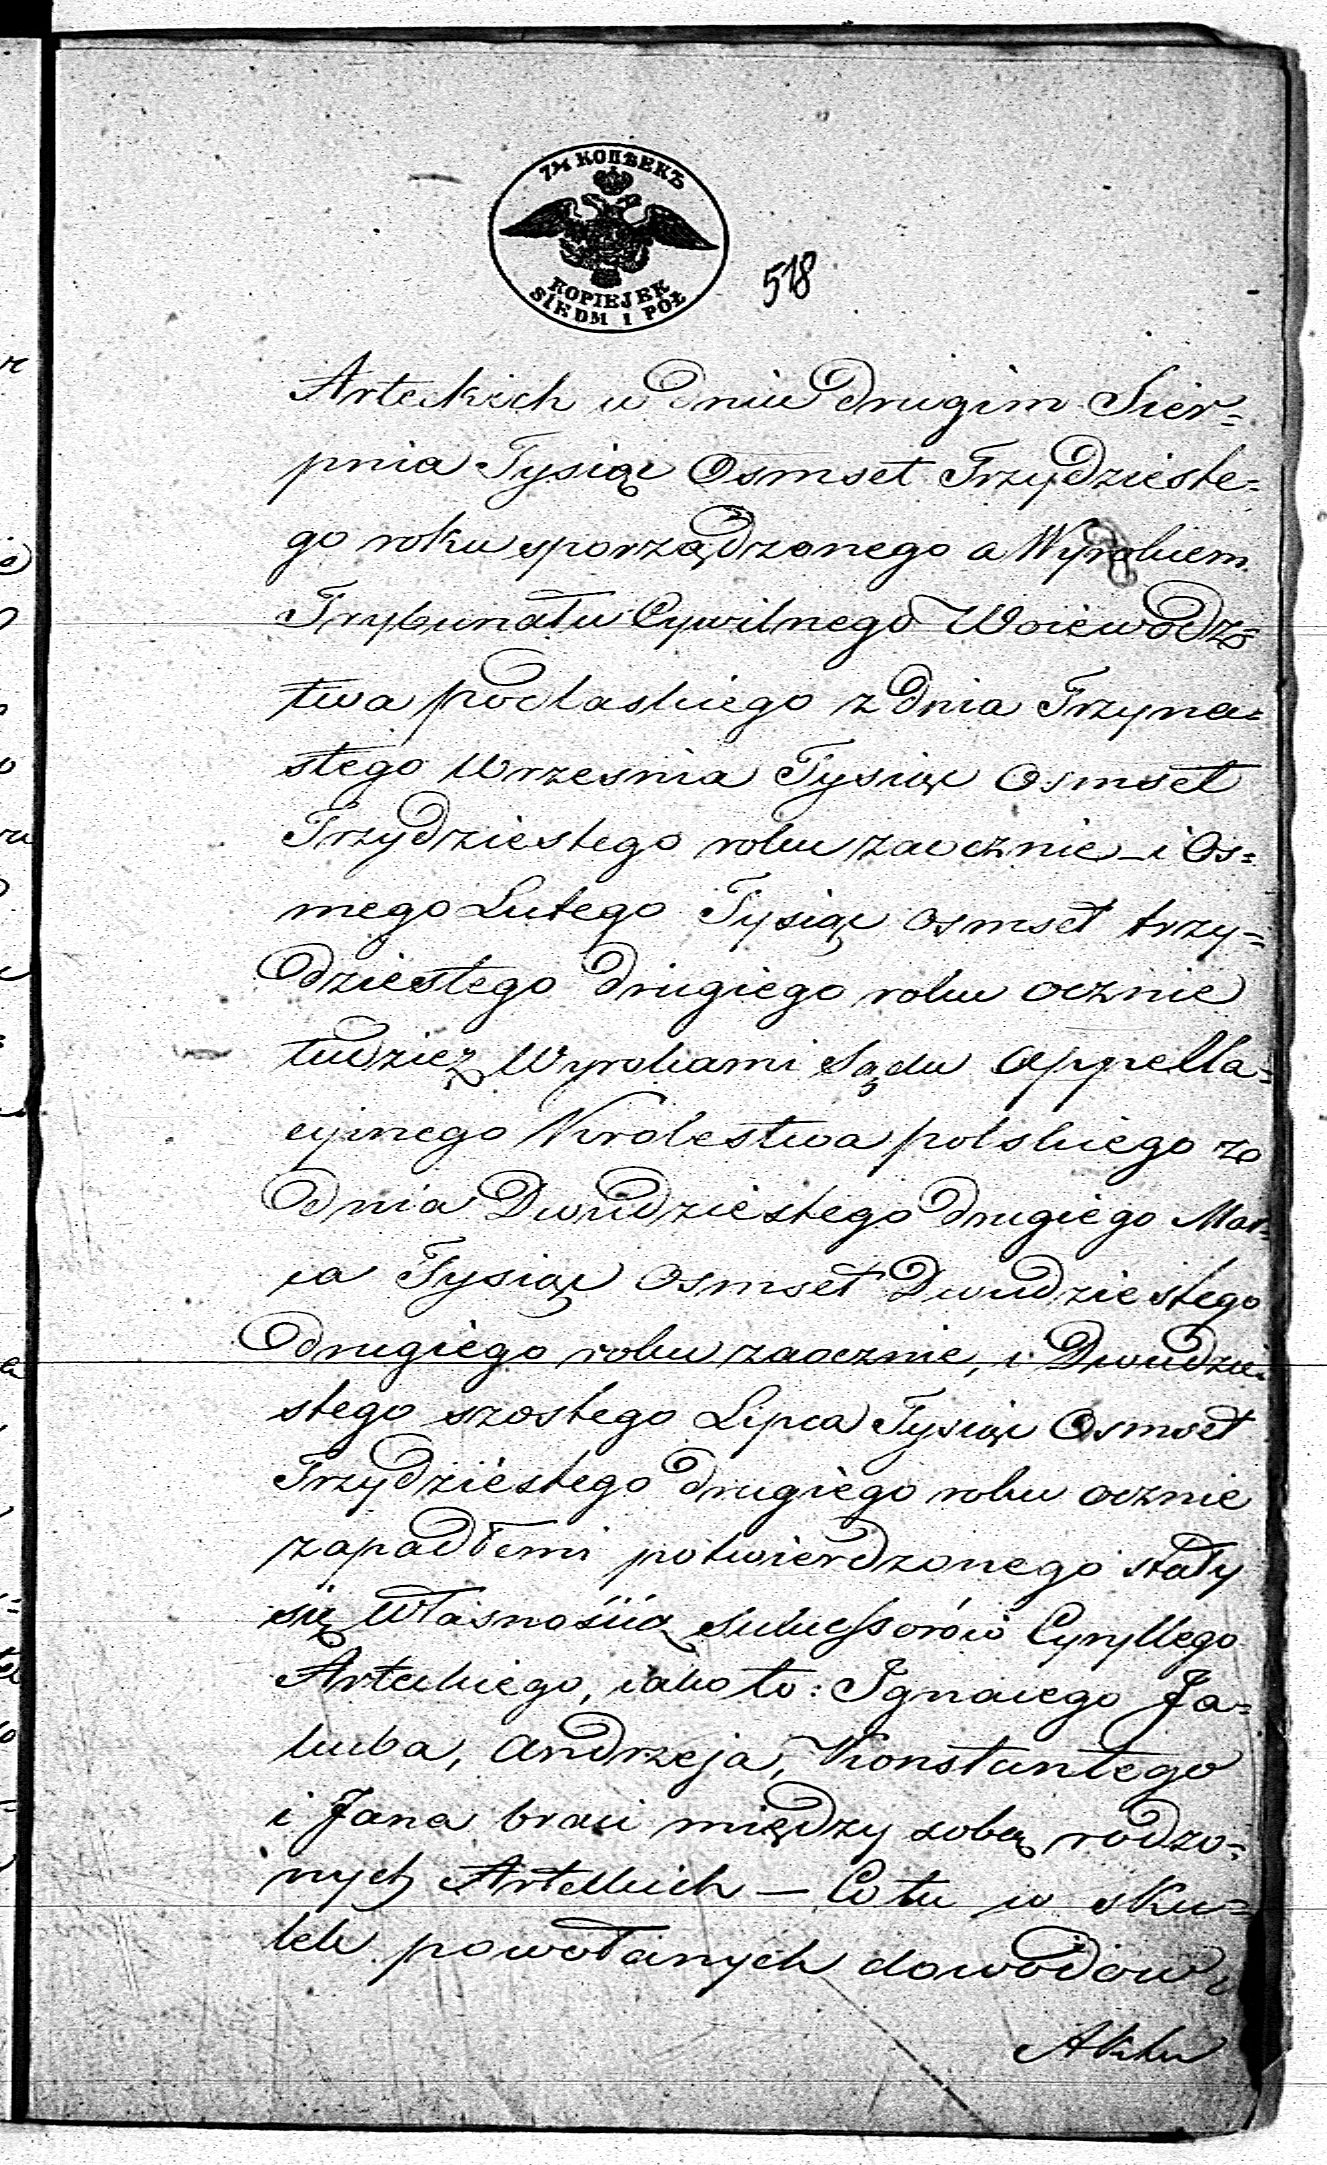 7½ КОПѢЕКЪ
KOPIEJEK
SIEDM I PÓŁ
518
Arteckich w dniu drugim Sier=
pnia Tysiąc Osmset Trzydzieste=
go roku sporządzonego a Wyrokiem
Trybunału Cywilnego Woiewodz=
twa podlaskiego z dnia Trzyna=
stego Wrzesnia Tysiąc Osmset
Trzydziestego roku zaocznie i Os=
mego Lutego Tysiąc osmset trzy=
dziestego drugiego roku ocznie
tudzież Wyrokami Sądu Appella=
cyinego Krolestwa polskiego z
dnia Dwudziestego drugiego Mar=
ca Tysiąc Osmset Dwudziestego
drugiego roku zaocznie, i Dwudzie=
stego szostego Lipca Tysiąc Osmset
Trzydziestego drugiego roku ocznie
zapadłemi potwierdzonego stały
się Własnością Sukcessorów Cyryllego
Arteckiego, iako to: Ignacego Ja=
kuba, Andrzeja, Konstantego
i Jana braci między sobą rodzo=
nych Arteckich — Co tu w sku=
tek powołanych dowodow,
Aktu